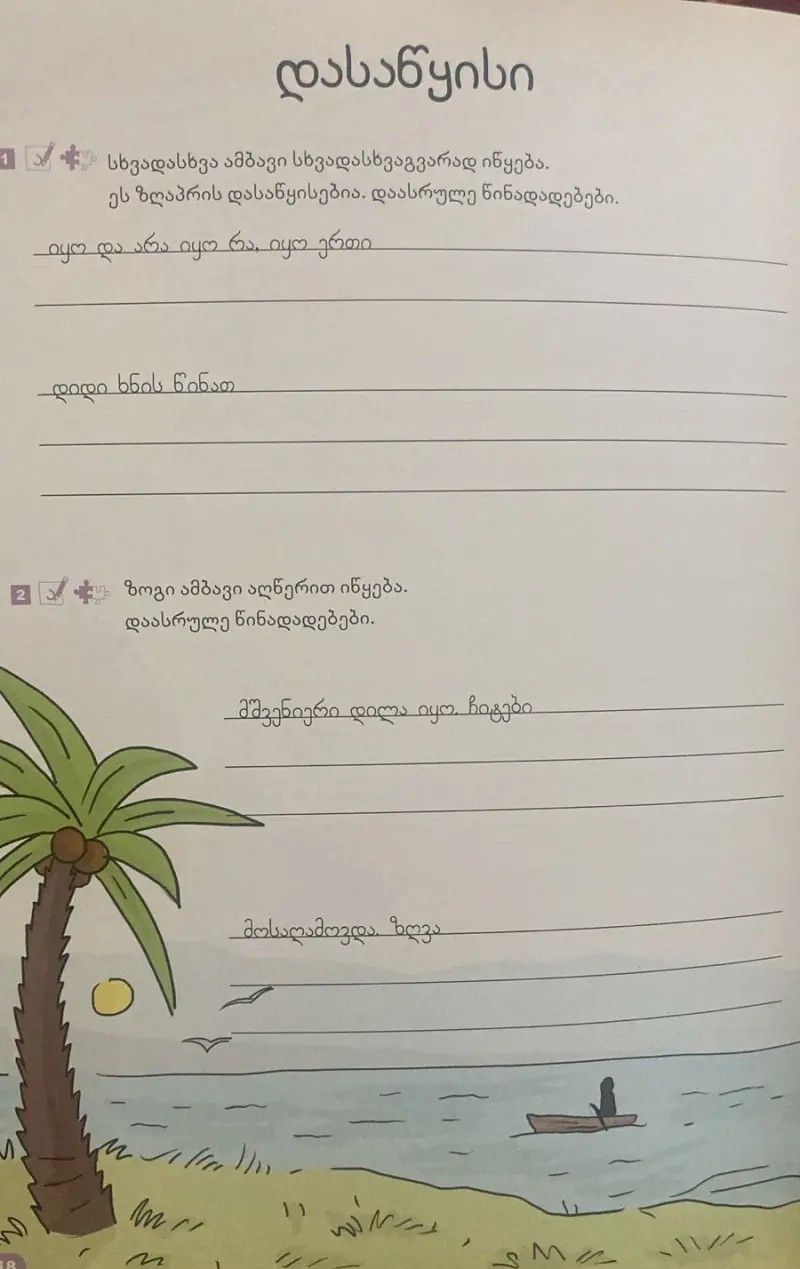 დასაწყისი
1 ა სხვადასხვა ამბავი სხვადასხვაგვარად იწყება.
ეს ზღაპრის დასაწყისებია. დაასრულე წინადადებები.
იყო და არა იყო რა, იყო ერთი
დიდი ხნის წინათ
2 ა ზოგი ამბავი აღწერით იწყება.
დაასრულე წინადადებები.
მშვენიერი დილა იყო. ჩიტები
მოსაღამოვდა. ზღვა
18